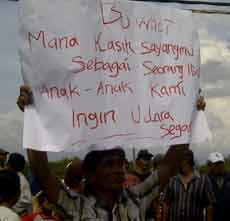 Bu WALI
Mana Kasih Sayangmu
Sebagai Seorang Ibu
Anak-Anak Kami
Ingin Udara
Segar